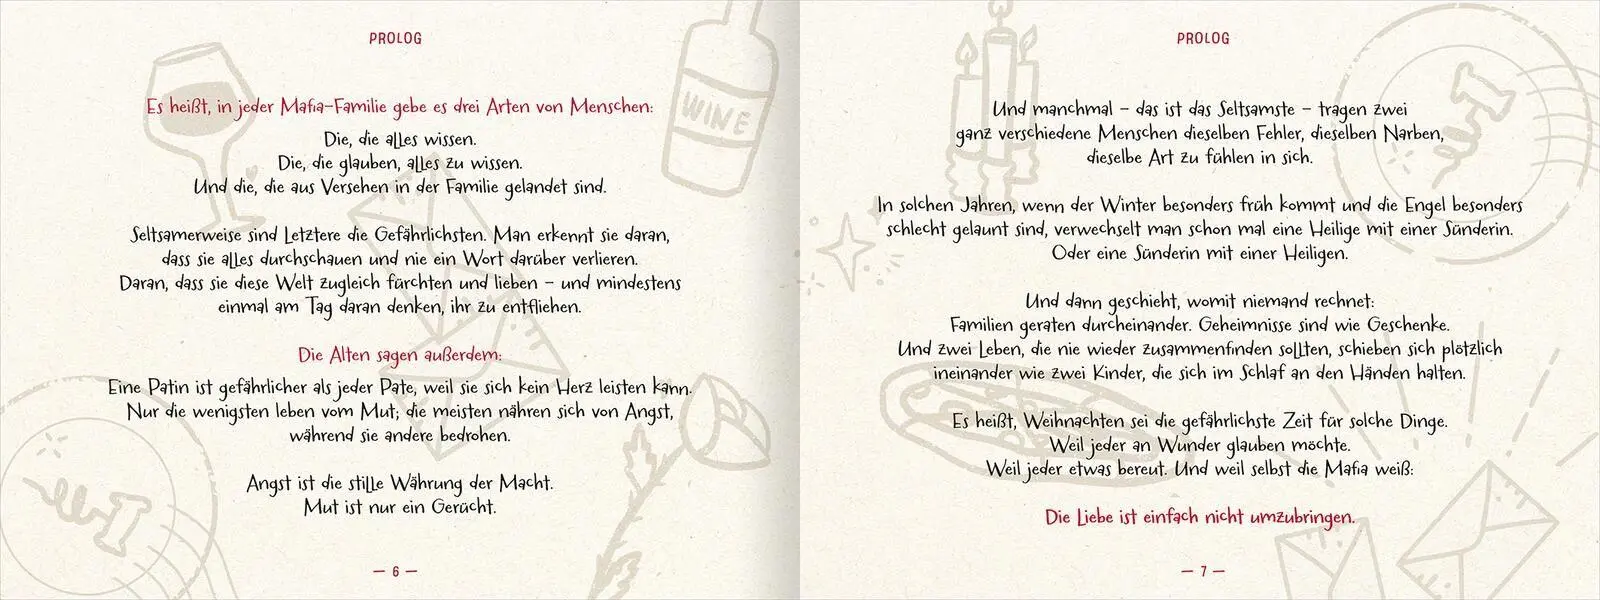 PROLOG
Es heißt, in jeder Mafia-Familie gebe es drei Arten von Menschen:
Die, die alles wissen.
Die, die glauben, alles zu wissen.
Und die, die aus Versehen in der Familie gelandet sind.
Seltsamerweise sind Letztere die Gefährlichsten. Man erkennt sie daran,
dass sie alles durchschauen und nie ein Wort darüber verlieren.
Daran, dass sie diese Welt zugleich fürchten und lieben – und mindestens
einmal am Tag daran denken, ihr zu entfliehen.
Die Alten sagen außerdem:
Eine Patin ist gefährlicher als jeder Pate, weil sie sich kein Herz leisten kann.
Nur die wenigsten leben vom Mut; die meisten nähren sich von Angst,
während sie andere bedrohen.
Angst ist die stille Währung der Macht.
Mut ist nur ein Gerücht.
– 6 –
WINE
PROLOG
Und manchmal – das ist das Seltsamste – tragen zwei
ganz verschiedene Menschen dieselben Fehler, dieselben Narben,
dieselbe Art zu fühlen in sich.
In solchen Jahren, wenn der Winter besonders früh kommt und die Engel besonders
schlecht gelaunt sind, verwechselt man schon mal eine Heilige mit einer Sünderin.
Oder eine Sünderin mit einer Heiligen.
Und dann geschieht, womit niemand rechnet:
Familien geraten durcheinander. Geheimnisse sind wie Geschenke.
Und zwei Leben, die nie wieder zusammenfinden sollten, schieben sich plötzlich
ineinander wie zwei Kinder, die sich im Schlaf an den Händen halten.
Es heißt, Weihnachten sei die gefährlichste Zeit für solche Dinge.
Weil jeder an Wunder glauben möchte.
Weil jeder etwas bereut. Und weil selbst die Mafia weiß:
Die Liebe ist einfach nicht umzubringen.
– 7 –